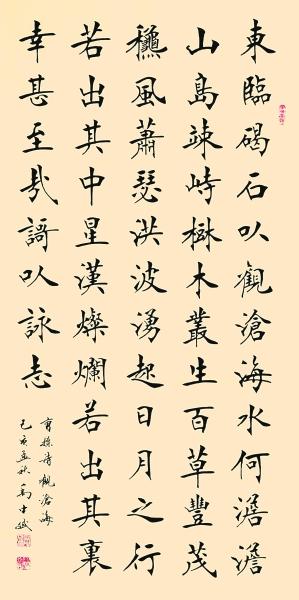 東臨碣石以觀滄海水何澹澹
山島竦峙樹木叢生百草豐茂
穐風蕭瑟洪波湧起日月之行
若出其中星漢燦爛若出其裏
幸甚至哉謌以詠志
曹操詩觀滄海
己亥孟秋馬